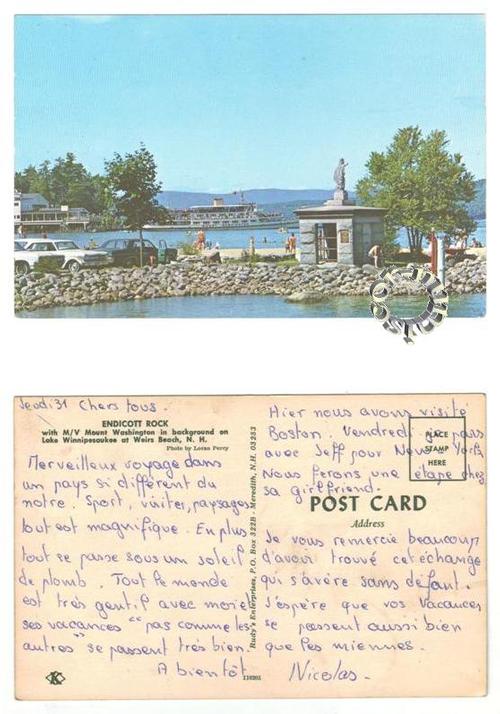 Jeudi 31 Chers tous.
ENDICOTT ROCK
with M/V Mount Washington in background on
Lake Winnipesaukee at Weirs Beach, N. H.
Photo by Loran Percy
Merveilleux voyage dans
un pays si différent du
notre. Sport, visites, paysages
tout est magnifique. En plus
tout ce passe sous un soleil
de plomb. Tout le monde
est très gentil avec moi et
ses vacances "pas comme les
autres" se passent très bien.
A bientôt
Rudy's Enterprises, P.O. Box 322B - Meredith, N.H. 03253
110205
Hier nous avons visité
Boston. Vendredi je pars
avec Jeff pour New-York
Nous ferons une étape chez
sa girlfriend.
PLACE
STAMP
HERE
POST CARD
Address
Je vous remercie beaucoup
d'avoir trouvé cet échange
qui s'avère sans défaut.
J'espère que vos vacances
se passent aussi bien
que les miennes.
Nicolas.